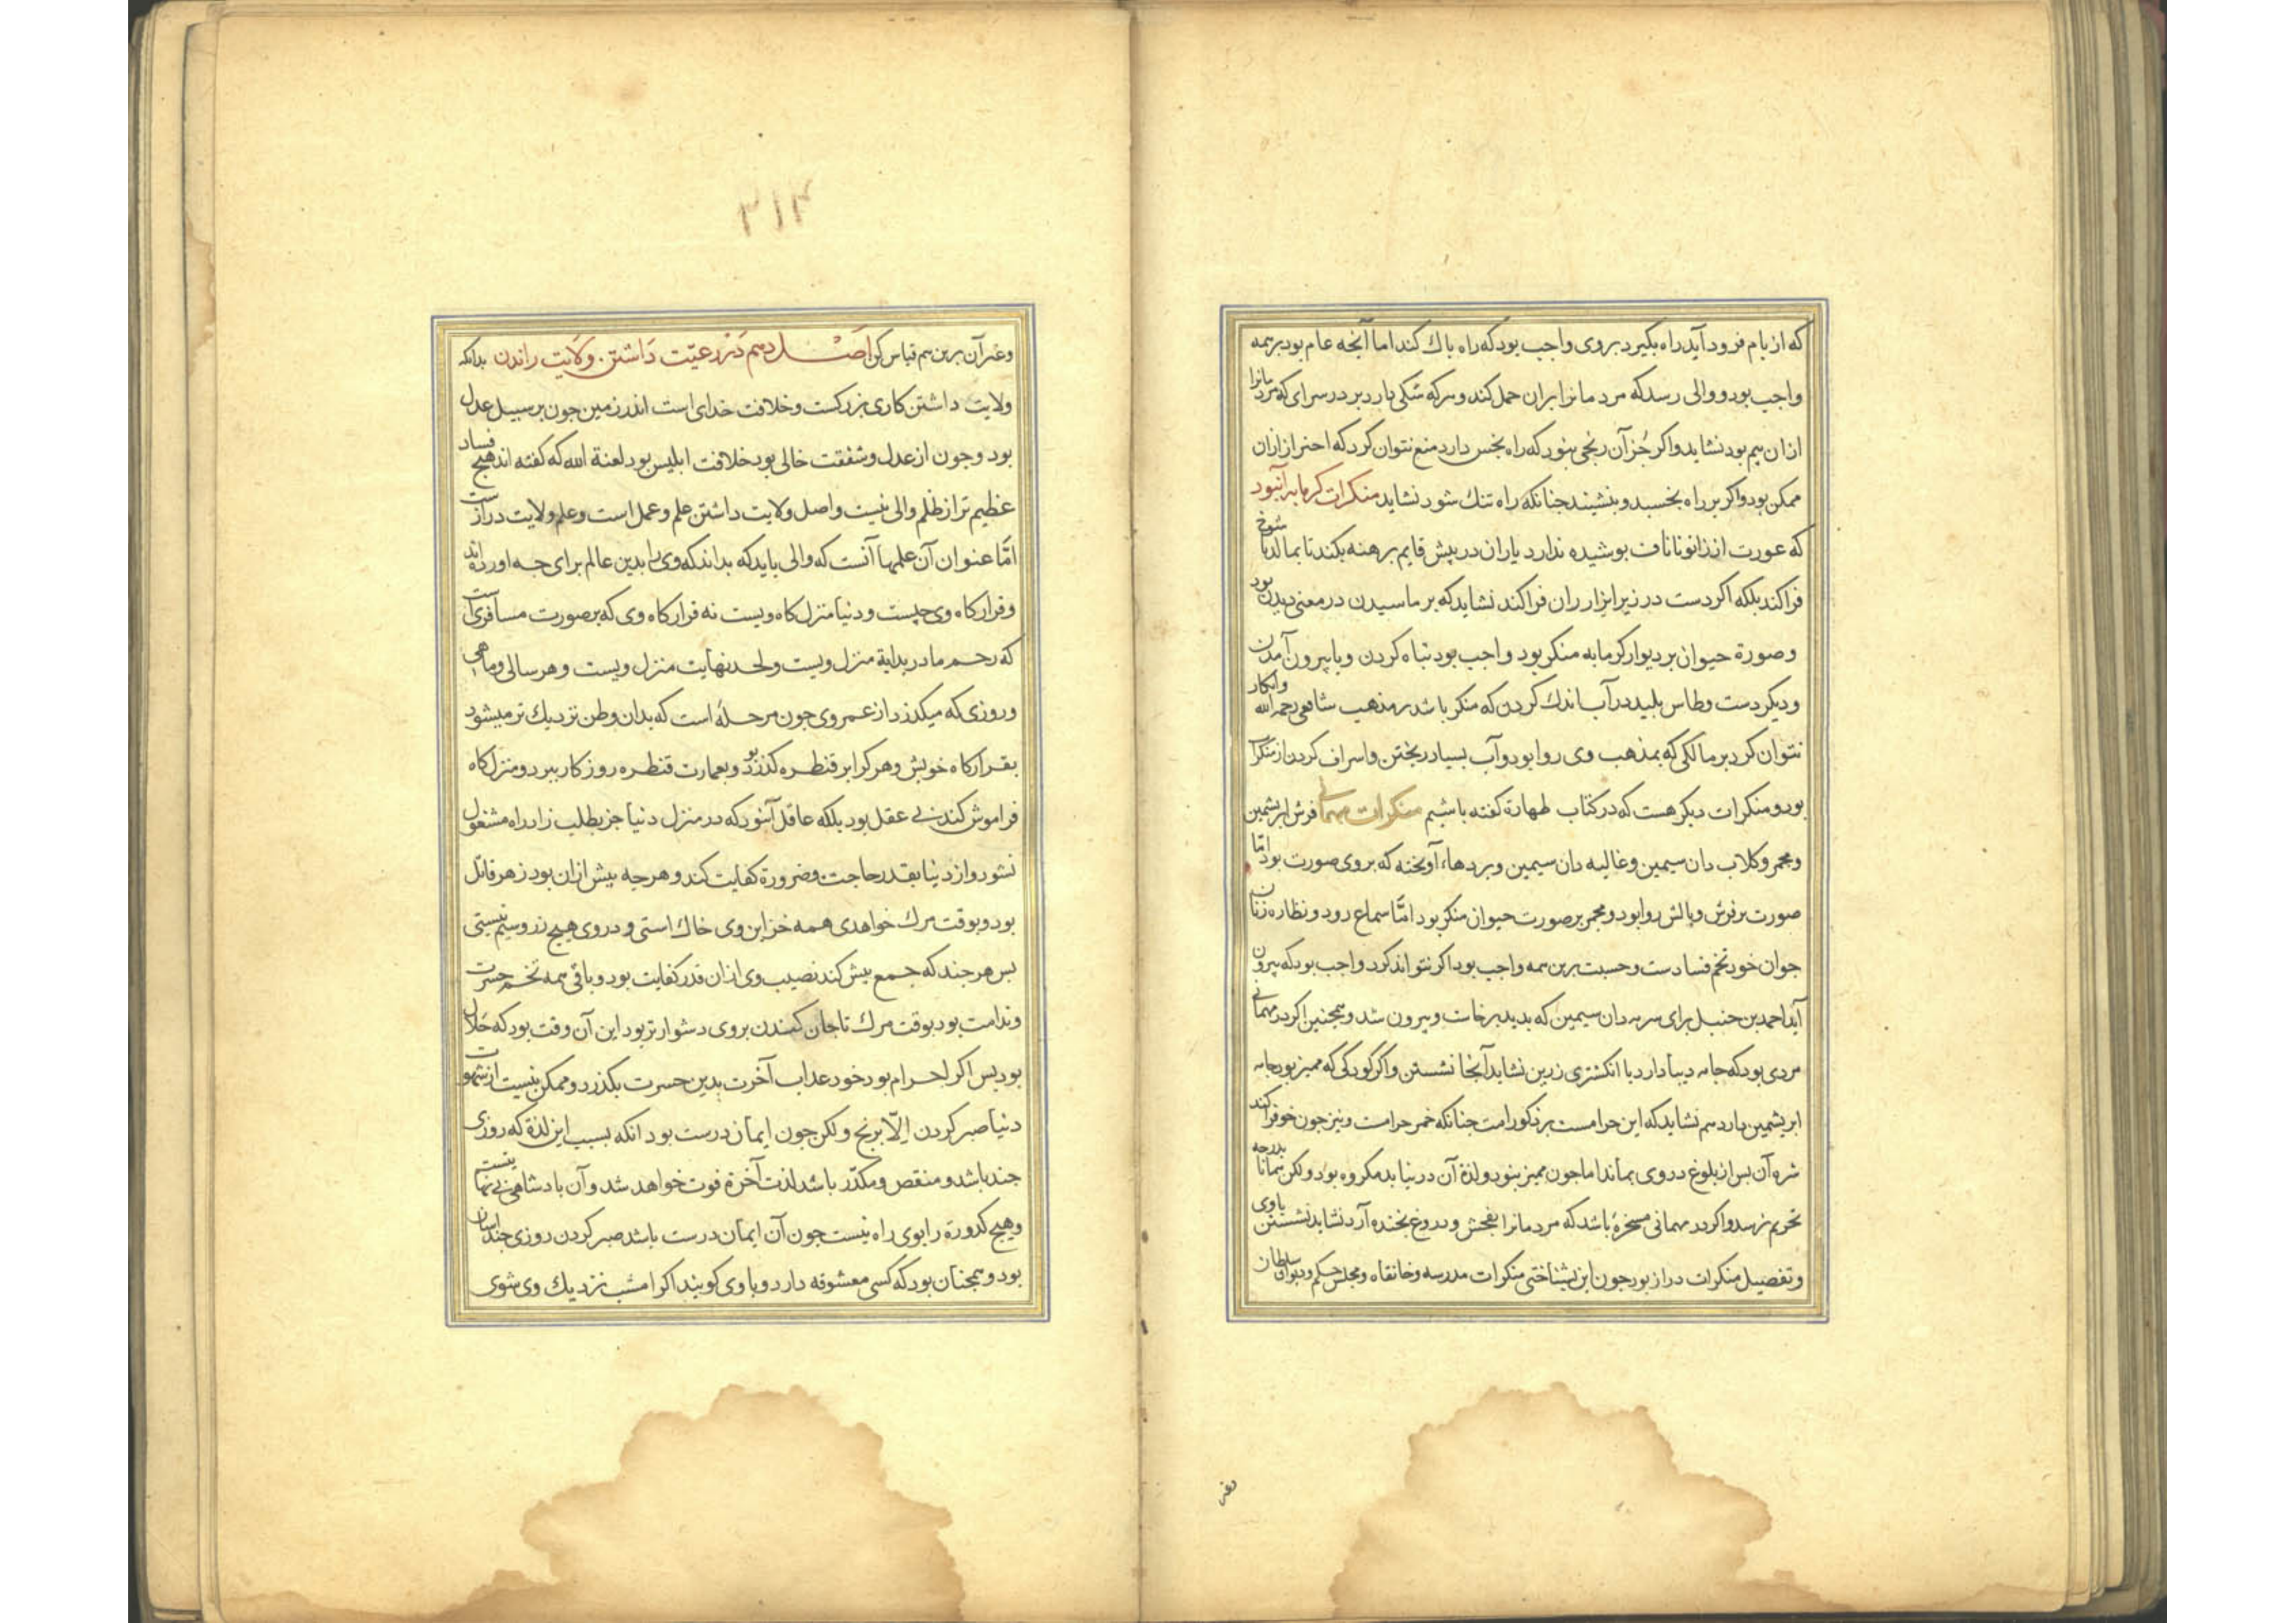 که از بام فرود آید راه بگیرد بروی واجب بود که راه باك کند اما آنجه عام بود بر همه
واجب بود و والی رسد که مردمانرا بران حمل کند و هرکه سکی دارد بر در سرای که مردمانرا
ازان بیم بود نشاید و اکر جُز آن رنجی نبود که راه نجس دارد منع نتوان کرد که احتراز ازان
ممکن بود و اکر بر راه بخسبد و بنشیند جنانکه راه تنك شود نشاید منکرات کرمابه آنبود
که عورت از زانو تا ناف بوشیده ندارد یا ران در پیش قایم برهنه بکند تا بمالد یا شوخ
فرا کند بلکه اکر دست در زیر ایزار ران فرا کند نشاید که بر ماسیدن در معنی دیدن بود
و صورة حیوان بر دیوار کرمابه منکر بود و واجب بود تباه کردن و یا بیرون آمدن
و دیکر دست و طاس بلید در آب اندك کردن که منکر باشد بر مذهب شافعی رحمه الله و انکار
نتوان کرد بر مالکی که بمذهب وی روا بود و آب بسیار ریختن و اسراف کردن از منکرات
بود و منکرات دیکر هست که در کتاب طهارة کفته باشیم منکرات مهمانی فرش ابریشمین
و مجمر و کلاب دان سیمین و غالیه دان سیمین و بردهاء آویخته که بروی صورت بود امّا
صورت بر فرش و بالش روا بود و مجمر بر صورت حیوان منکر بود امّا سماع رود و نظاره زنان
جوان خود تخم فسادست و حسبت برین همه واجب بود اکر نتواند کرد واجب بود که بیرون
آید احمد بن حنبل برای سرمه دان سیمین که بدید برخاست و بیرون شد و همجنین اکر در مهمانی
مردی بود که جامه دیبا دارد با انکشتری زرین نشاید آنجا نشستن و اکر کودکی که ممیز بود جامه
ابریشمین دارد هم نشاید که این حرامست بر ذکور امت جنانکه خمر حرامست و نیز جون خو فرا کند
شره آن بس از بلوغ در وی بماند اما جون ممیز نبود و لذة آن در نیابد مکروه بود ولکن همانا بدرجه
تحریم نرسد و اکر در مهمانی مسخرۀ باشد که مردمانرا بفحش و دروغ بخنده آرد نشاید نشستن با وی
و تفصیل منکرات دراز بود جون این بشناختی منکرات مدرسه و خانقاه و مجلس حکم و دیوان سلطان
وغیر
۲۱۴
و غیر آن برین هم قیاس کن اصل دهم در رعیّت داشتن و ولایت راندن بدانکه
ولایت داشتن کاری بزرکست و خلافت خدای است اندر زمین جون بر سبیل عدل
بود و جون از عدل و شفقت خالی بود خلافت ابلیس بود لعنة الله که کفته اند هیج فساد
عظیم تر از ظلم والی نیست و اصل ولایت داشتن علم و عمل است و علم ولایت درازست
امّا عنوان آن علمها آنست که والی باید که بداند که وی را بدین عالم برای جه آورده اند
و قرارکاه وی جیست و دنیا منزل کاه ویست نه قرارکاه وی که بر صورت مسافری است
که رحم مادر بدایة منزل ویست و لحد نهایت منزل ویست و هر سالی و ماهی
و روزی که میکذرد از عمر وی جون مرحلۀ است که بدان وطن نزدیك تر میشود
بقرارکاه خویش و هر کرا بر قنطره کذر بود و بعمارت قنطره روزکار ببرد و منزل کاه
فراموش کند بی عقل بود بلکه عاقل آنبود که در منزل دنیا جز بطلب زاد راه مشغول
نشود و از دنیا بقدر حاجت و ضرورة کفایت کند و هرجه بیش ازان بود زهر قاتل
بود و بوقت مرك خواهدی همه خزاین وی خاك استی و در وی هیج زر و سیم نیستی
بس هرجند که جمع بیش کند نصیب وی ازان قدر کفایت بود و باقی همه تخم حسرت
و ندامت بود بوقت مرك تا جان کندن بروی دشوارتر بود این آن وقت بود که حلال
بود پس اکر از حرام بود خود عذاب آخرت بدین حسرت بکذرد و ممکن نیست از شهوات
دنیا صبر کردن اِلّا برنج ولکن جون ایمان درست بود انکه بسبب این لذة که روزی
جند باشد و منقص و مکدّر باشد لذت آخرة فوت خواهد شد و آن بادشاهی بی نهایتست
و هیج کدورة را بوی راه نیست جون آن ایمان درست باشد صبر کردن روزی جند آسان
بود و همجنان بود که کسی معشوقه دارد و با وی کویند اکر امشب نزدیك وی شوی